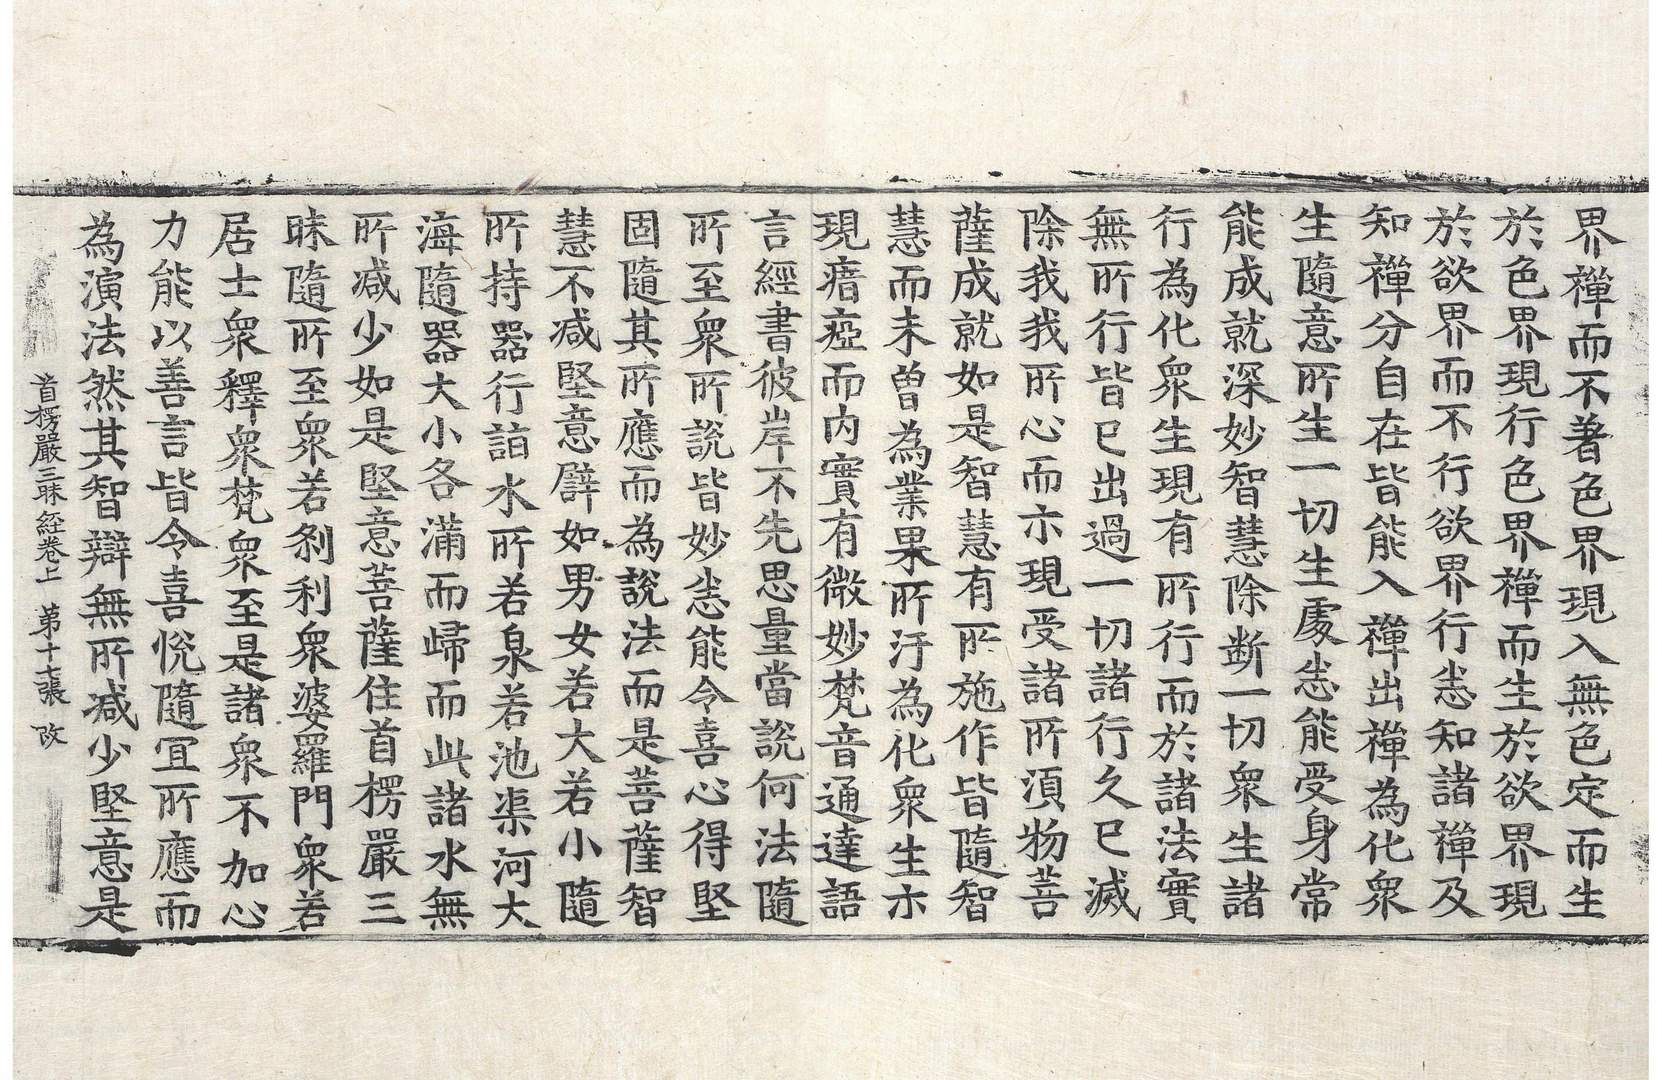 界禪而不著色界現入無色定而生
於色界現行色界禪而生於欲界現
於欲界而不行欲界行悉知諸禪及
知禪分自在皆能入禪出禪為化衆
生隨意所生一切生處悉能受身常
能成就深妙智慧除断一切衆生諸
行為化衆生現有所行而於諸法實
無所行皆已出過一切諸行久已滅
除我我所心而亦現受諸所須物菩
薩成就如是智慧有所施作皆隨智
慧而未曾為業果所汙為化衆生亦
現瘖瘂而内實有微妙梵音通達語
言經書彼岸不先思量當說何法隨
所至衆所說皆妙悉能令喜心得堅
固隨其所應而為說法而是菩薩智
慧不减堅意譬如男女若大若小隨
所持器行詣水所若泉若池渠河大
海隨器大小各滿而歸而此諸水無
所减少如是堅意菩薩住首楞嚴三
昧隨所至衆若刹利衆婆羅門衆若
居士衆釋衆梵衆至是諸衆不加心
力能以善言皆令喜悅隨冝所應而
為演法然其智辯無所减少堅意是
首楞嚴三昧経卷上　第十七張　改